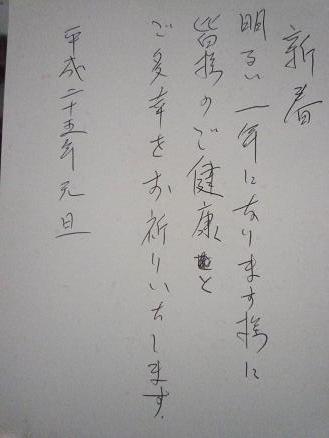 新春
明るい一年になります様に
皆様のご健康と
ご多幸をお祈りいたします。
平成二十五年元旦